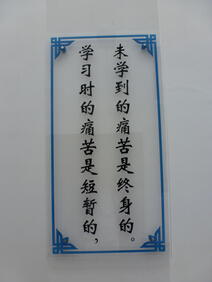 学习时的痛苦是短暂的，
未学到的痛苦是终身的。